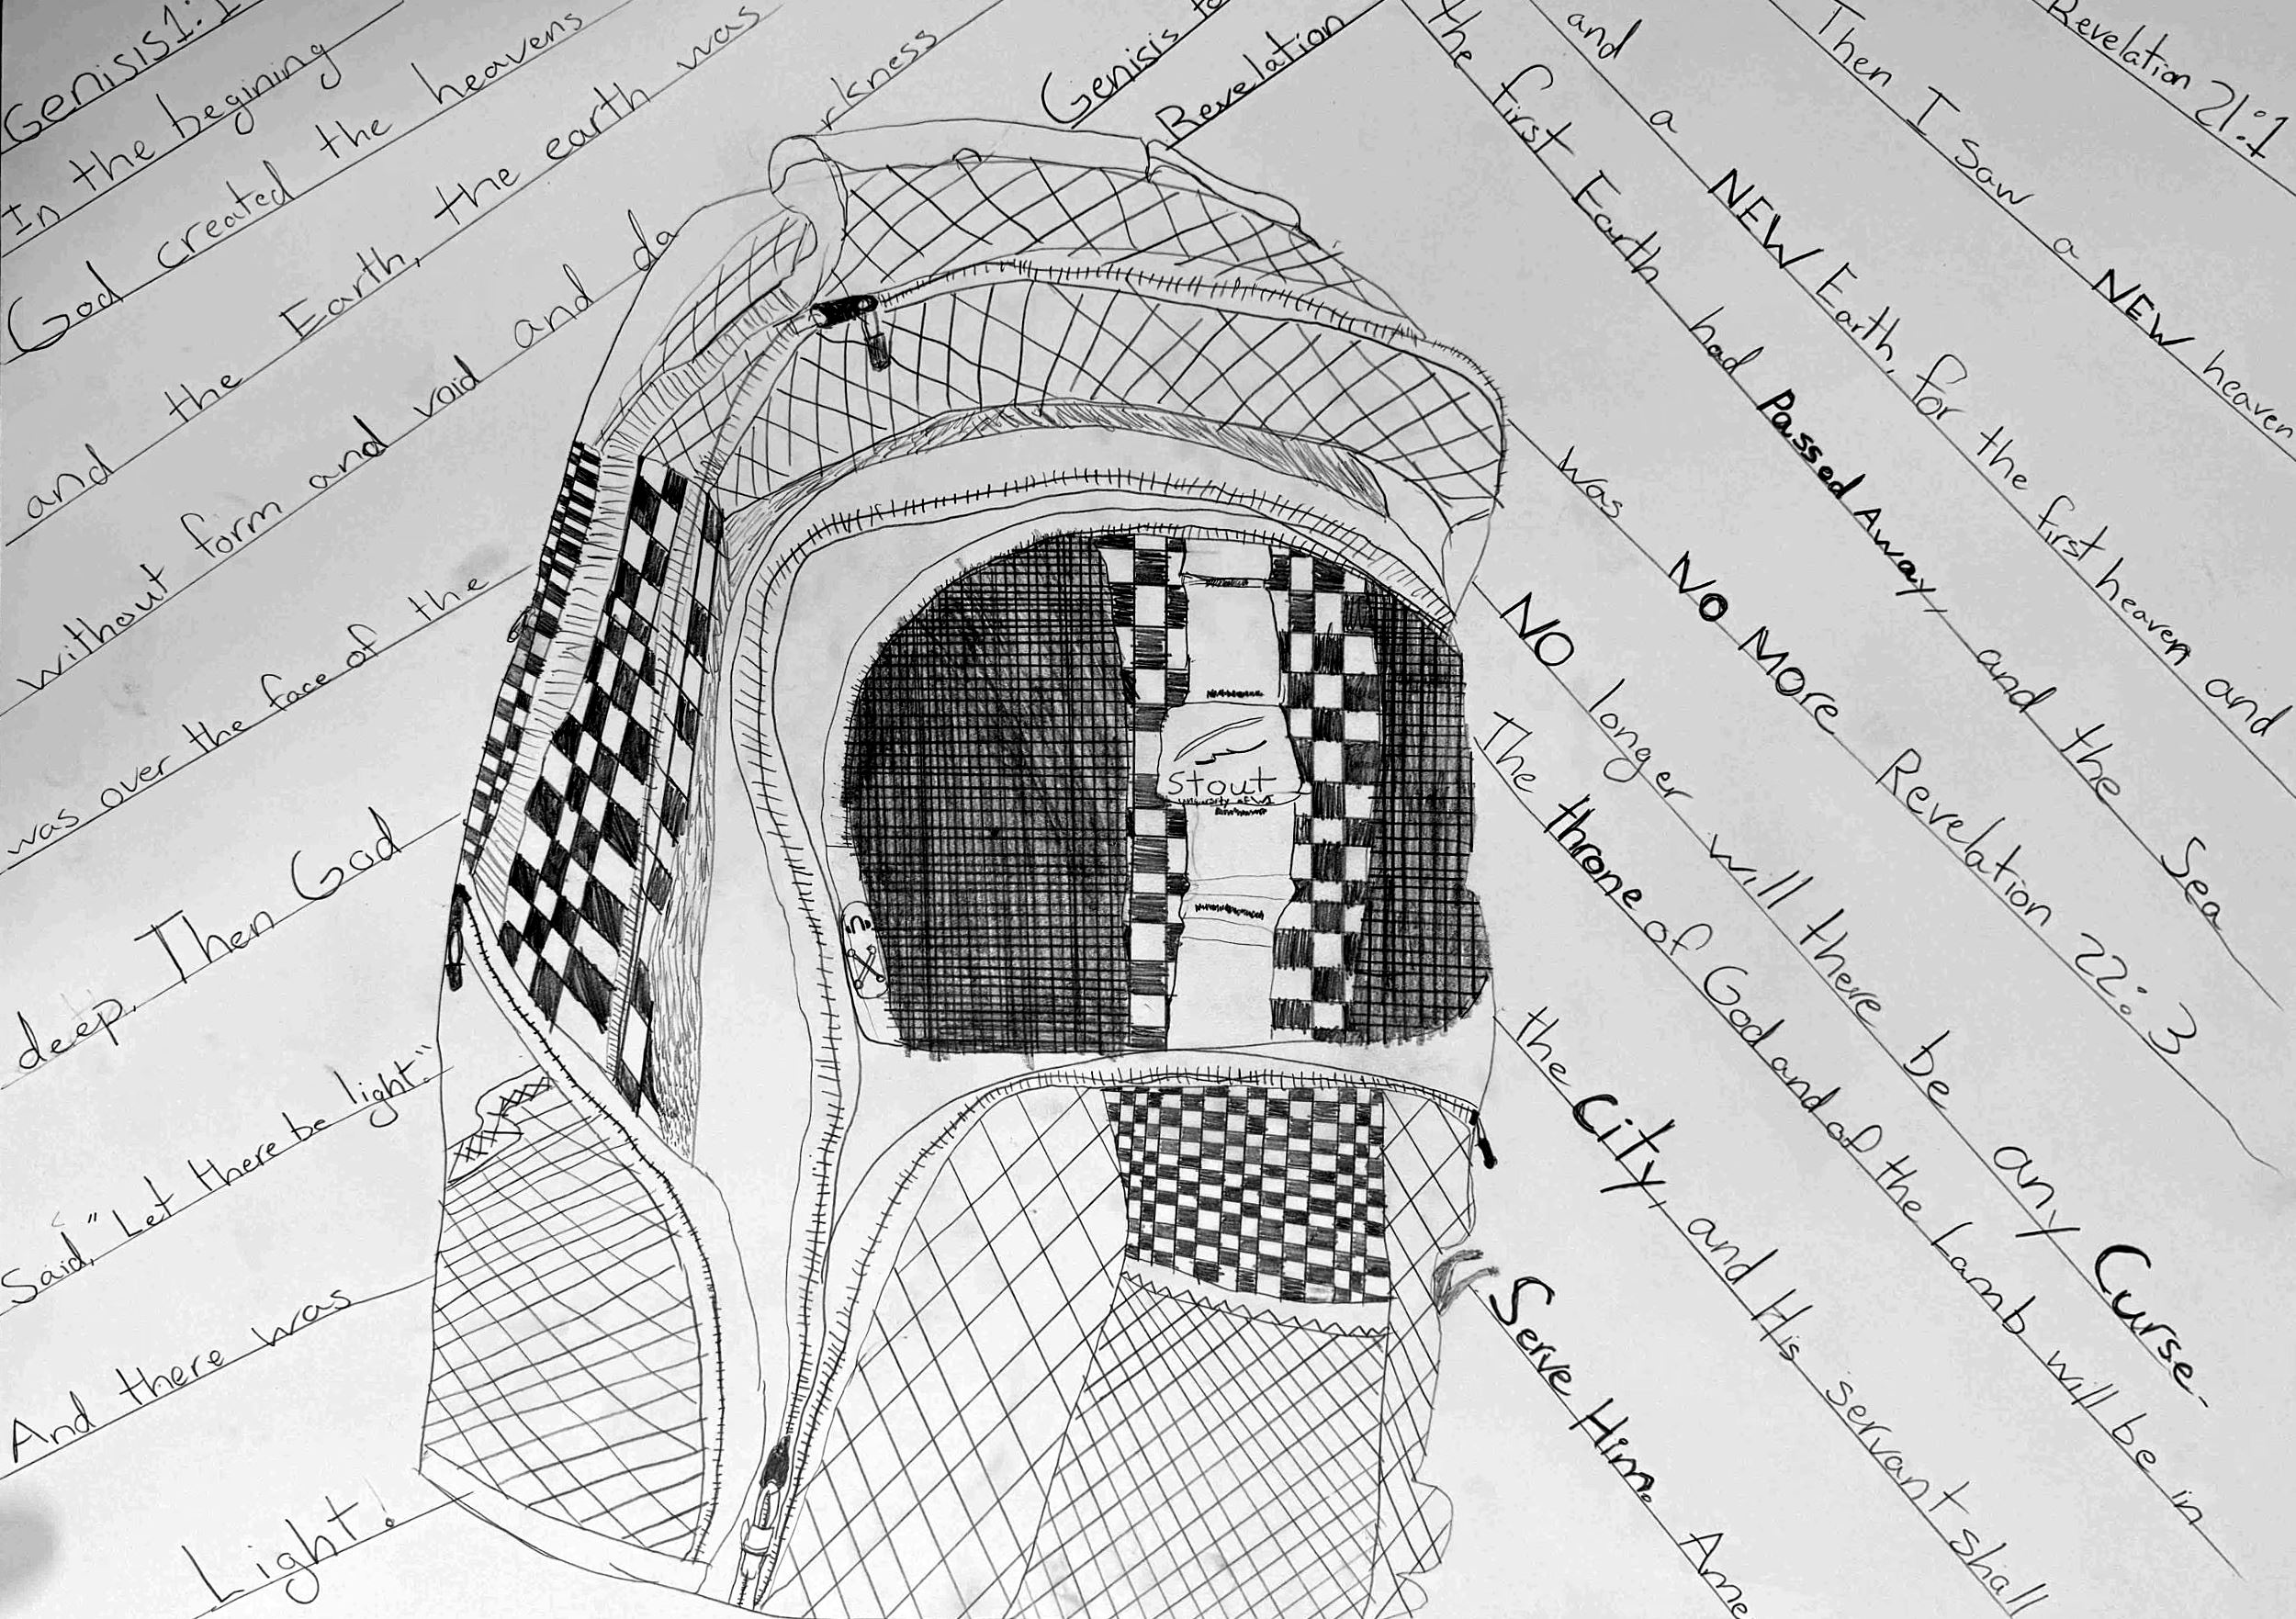 Genisis 1:1
In the begining
God created the heavens
and the Earth, the earth was
without form and void and da
rkness
was over the face of the
deep. Then God
Said, "Let there be light."
And there was
Light!
Genisis to
Revelation
Revelation 21:1
Then I saw a NEW heaven
and a NEW Earth, for the first heaven and
the first Earth had Passed Away, and the Sea
was NO MORE Revelation 22:3
NO longer will there be any Curse.
The throne of God and of the Lamb will be in
the City, and His servant shall
Serve Him. Ame
Stout
University of WI